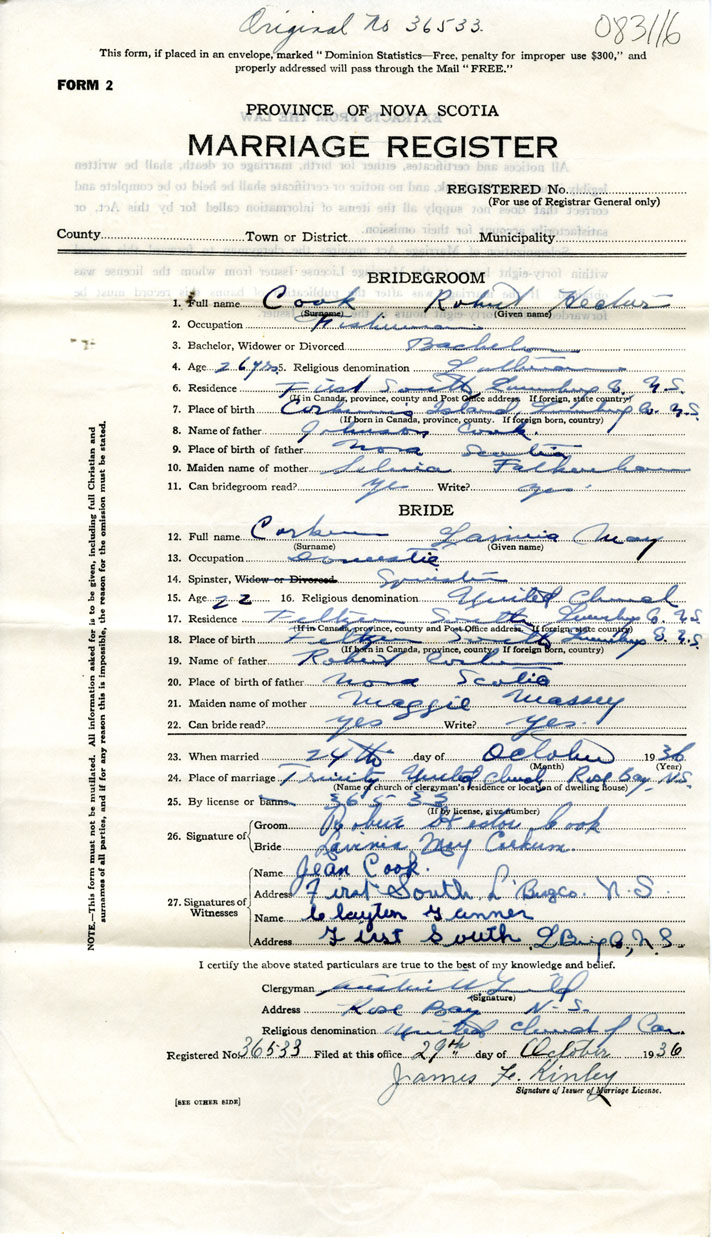 Original No 36533.
083116
This form, if placed in an envelope, marked "Dominion Statistics—Free, penalty for improper use $300," and
properly addressed will pass through the Mail "FREE."
FORM 2
PROVINCE OF NOVA SCOTIA
MARRIAGE REGISTER
REGISTERED No.
(For use of Registrar General only)
County Town or District Municipality
BRIDEGROOM
1. Full name Cook Robert Hector
(Surname) (Given name)
2. Occupation Fisherman
3. Bachelor, Widower or Divorced Bachelor
4. Age 26 yrs 5. Religious denomination
6. Residence First South, Lunenburg Co. N.S.
(If in Canada, province, county and Post Office address. If foreign, state country)
7. Place of birth Corkums Island, Lunenburg Co. N.S.
(If born in Canada, province, county. If foreign born, country)
8. Name of father Johnson Cook
9. Place of birth of father Nova Scotia
10. Maiden name of mother Falkenham
11. Can bridegroom read? yes Write? yes.
BRIDE
12. Full name Corkum Lavinia May
(Surname) (Given name)
13. Occupation Domestic
14. Spinster, Widow or Divorced Spinster
15. Age 22 16. Religious denomination United Church
17. Residence Feltzen South, Lunenburg Co. N.S.
(If in Canada, province, county and Post Office address. If foreign, state country)
18. Place of birth Feltzen South, Lunenburg Co. N.S.
(If born in Canada, province, county. If foreign born, country)
19. Name of father Robert Corkum
20. Place of birth of father Nova Scotia
21. Maiden name of mother Maggie Massey
22. Can bride read? yes Write? yes.
23. When married 24th day of October 1936
(Month) (Year)
24. Place of marriage Trinity United Church, Rose Bay, N.S.
(Name of church or clergyman's residence or location of dwelling house)
25. By license or banns 36533
(If by license, give number)
26. Signature of
Groom Robert Hector Cook
Bride Lavinia May Corkum.
27. Signatures of Witnesses
Name Jean Cook.
Address First South L'Burg Co. N.S.
Name Clayton Tanner
Address First South, L'Burg Co, N.S.
I certify the above stated particulars are true to the best of my knowledge and belief.
Clergyman
(Signature)
Address Rose Bay N.S.
Religious denomination United Church of Can.
Registered No. 36533 Filed at this office 29th day of October 1936
James F. Kinley
Signature of Issuer of Marriage License.
[SEE OTHER SIDE]
NOTE.—This form must not be mutilated. All information asked for is to be given, including full Christian and
surnames of all parties, and if for any reason this is impossible, the reason for the omission must be stated.